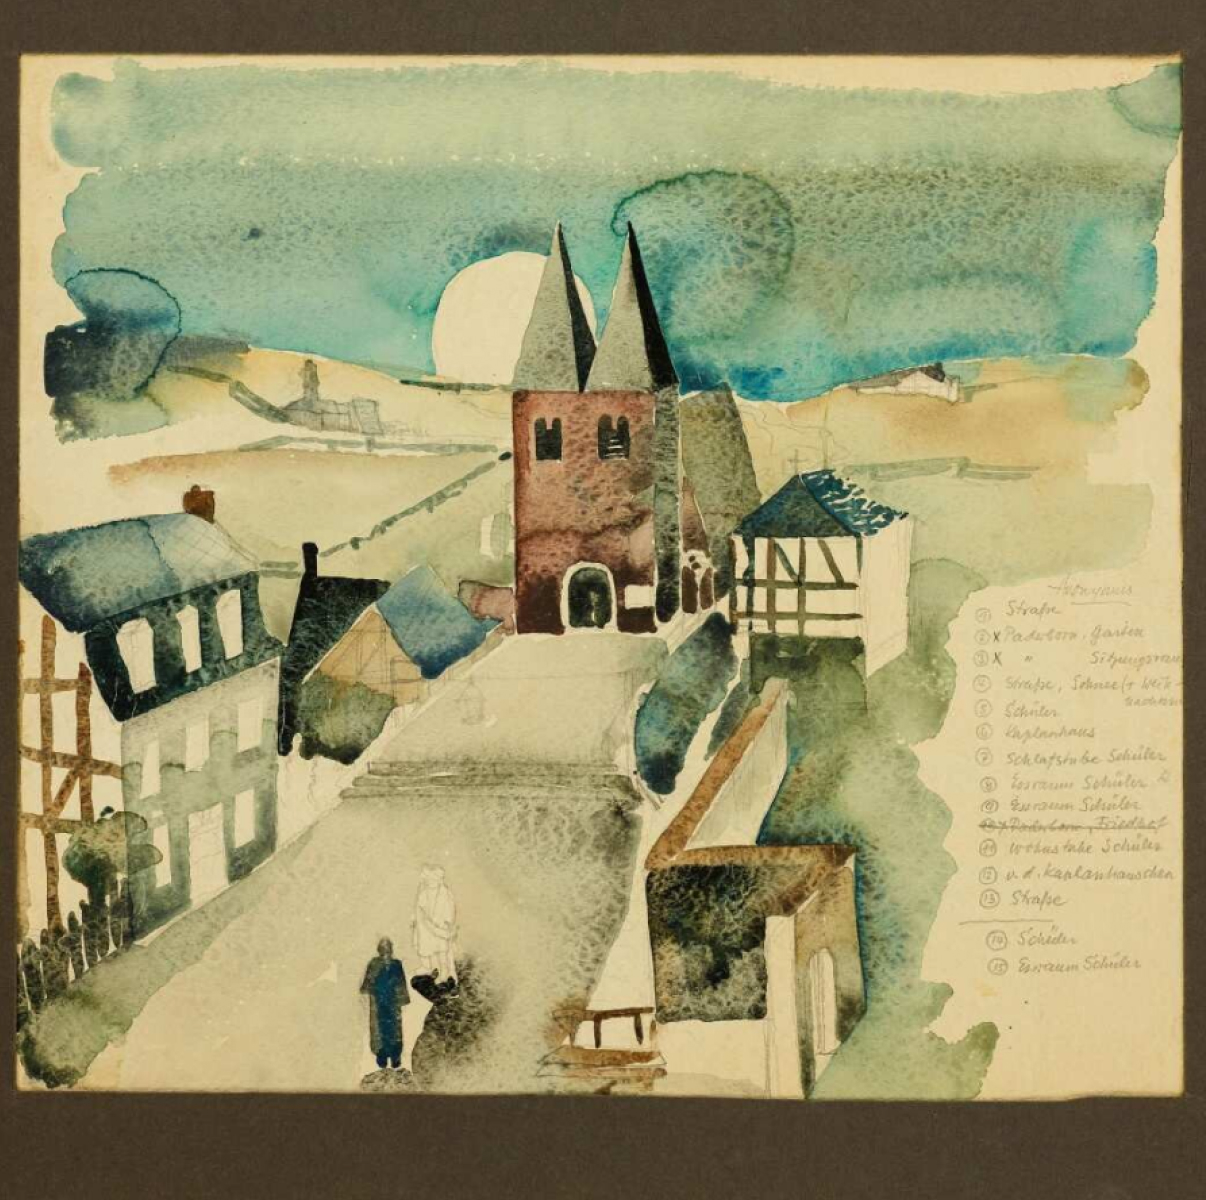 Anonymus
① Straße
② x Paderborn, Garten
③ x " Sitzungsraum
④ Straße, Schnee (+ Weih-
⑤ Schüler
⑥ Kaplanhaus
⑦ Schlafstube Schüler
⑧ Essraum Schüler
⑨ Essraum Schüler
⑩ x Paderborn, Friedhof
⑪ Wohnstube Schüler
⑫ v. d. Kaplanhäuschen
⑬ Straße
⑭ Schüler
⑮ Essraum Schüler